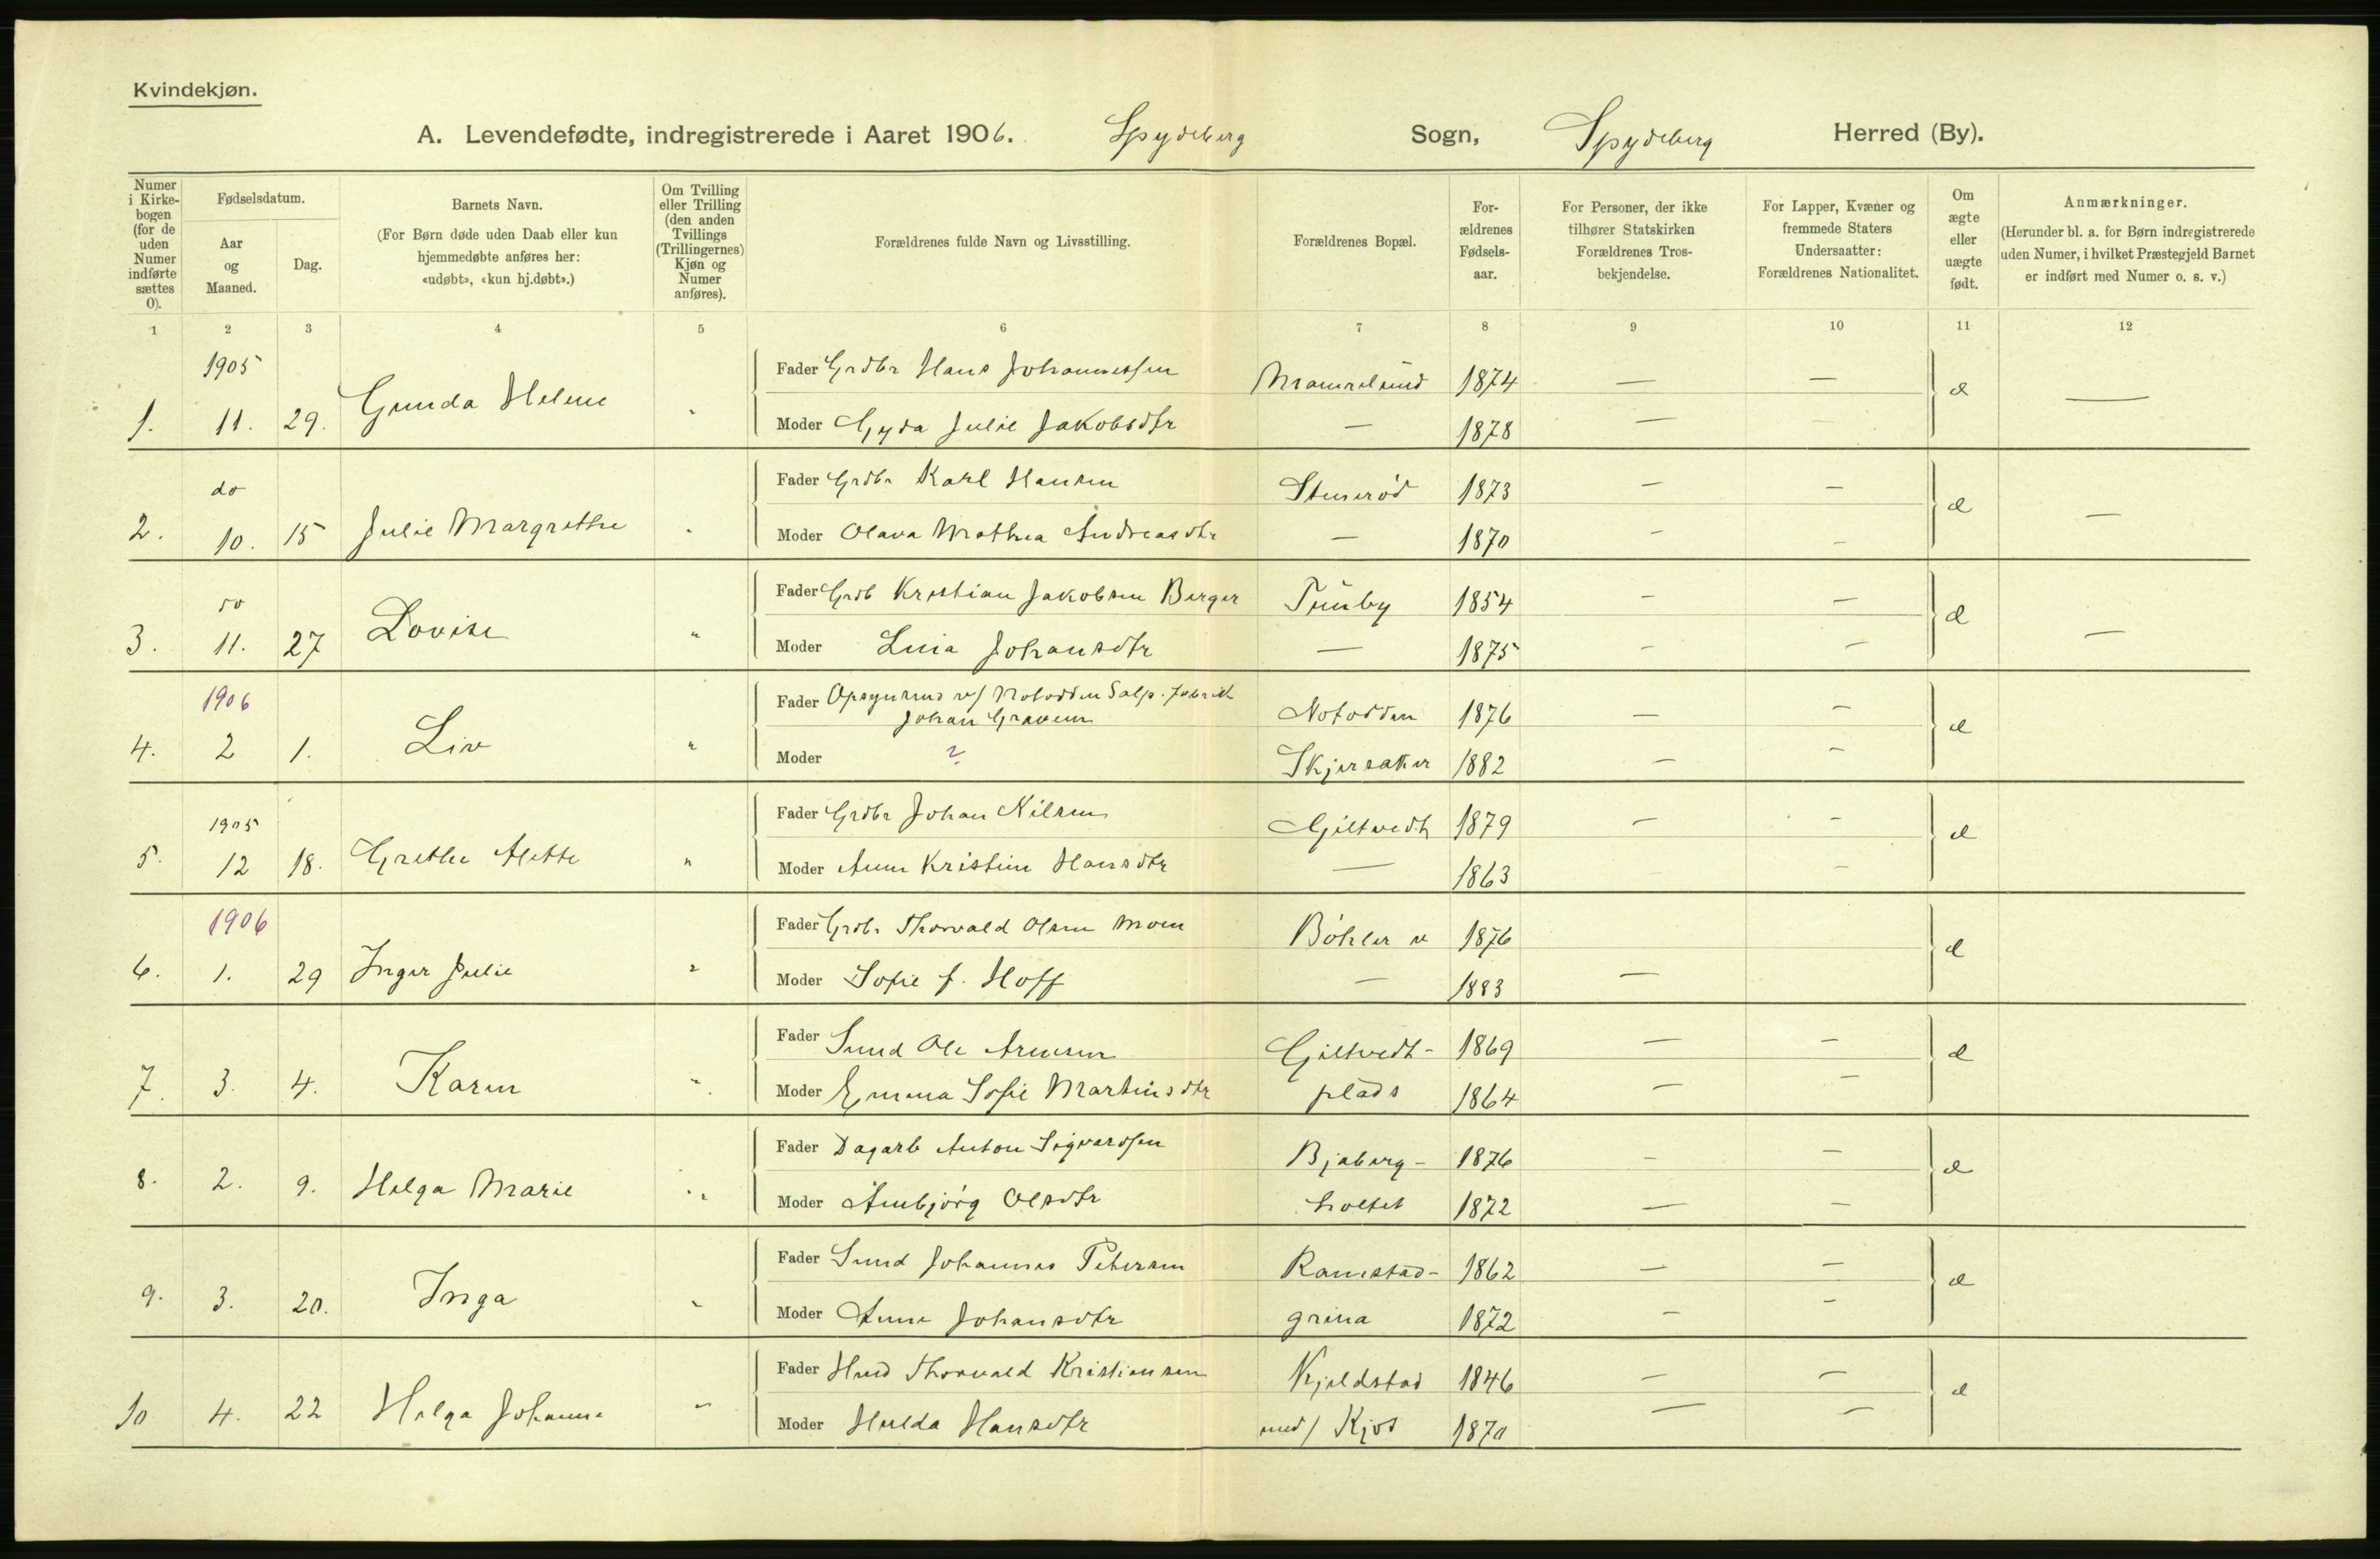 Kvindekjøn.
A. Levendefødte, indregistrerede i Aaret 1906. Spydeberg Sogn, Spydeberg Herred (By).
Numer i Kirkebogen (for de uden Numer indførte sættes 0).
Fødselsdatum.
Aar og Maaned.
Dag.
Barnets Navn.
(For Børn døde uden Daab eller kun hjemmedøbte anføres her: «udøbt», «kun hj.døbt».)
Om Tvilling eller Trilling (den anden Tvillings (Trillingernes) Kjøn og Numer anføres).
Forældrenes fulde Navn og Livsstilling.
Forældrenes Bopæl.
Forældrenes Fødselsaar.
For Personer, der ikke tilhører Statskirken Forældrenes Trosbekjendelse.
For Lapper, Kvæner og fremmede Staters Undersaatter: Forældrenes Nationalitet.
Om ægte eller uægte født.
Anmærkninger.
(Herunder bl. a. for Børn indregistrerede uden Numer, i hvilket Præstegjeld Barnet er indført med Numer o. s. v.)
1 2 3 4 5 6 7 8 9 10 11 12
1905
Fader Grdbr Hans Johannessen 1874 — — æ —
1. 11. 29. Gunda Helene
Moder Gyda Julie Jakobsdtr — 1878 —
do
Fader Grdbr Karl Hansen Stenerød 1873 — — æ —
2. 10. 15 Julie Margrethe
Moder Olava Mathea Andreasdtr — 1870 — —
do
Fader Grdb Kristian Jakobsen Berger Tunby 1854 — — æ —
3. 11. 27 Lovise "
Moder Lina Johansdtr — 1875 — —
1906
Fader Opsynsmd v/ Notodden Salp. fabrik
Johan Gravem Notodden 1876 — — æ
4. 2 1. Liv "
Moder ? Skjersaker 1882 — —
1905
Fader Grdbr Johan Nilsen Giltvedt 1879 — — æ
5. 12 18. Grethe Alette "
Moder Anne Kristine Hansdtr — 1863 — —
1906
Fader Grdbr Thorvald Olsen Moen Bøhler 1876 æ
6. 1. 29 Inger Julie "
Moder Sofie f. Hoff — 1883 —
Fader Smed Ole Arnesen Giltvedt- 1869 — — æ
7. 3. 4. Karen "
Moder Emma Sofie Martinsdtr plads 1864 — —
Fader Dagarb Anton Sigvardsen Bjaberg- 1876 — — æ
8. 2. 9. Helga Marie "
Moder Ambjørg Olsdtr holtet 1872 — —
Fader Smed Johannes Petersen Ramstad- 1862 — — æ
9. 3. 20. Inga "
Moder Anne Johansdtr grina 1872 — —
Fader Hmd Thorvald Kristiansen Kjeldstad 1846 — — æ
10 4. 22 Helga Johanne "
Moder Hulda Hansdtr 1870 — —